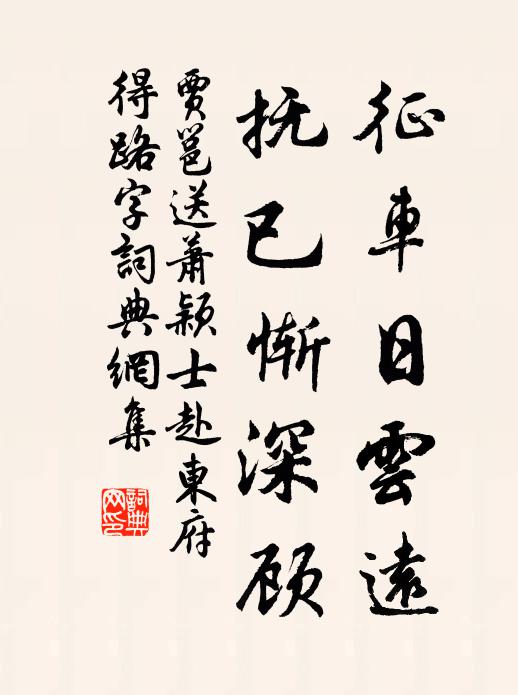 征車日雲遠
抚已惭深顾
賈邕送蕭颖士赴東府
得路字詞典網集
詞典网印